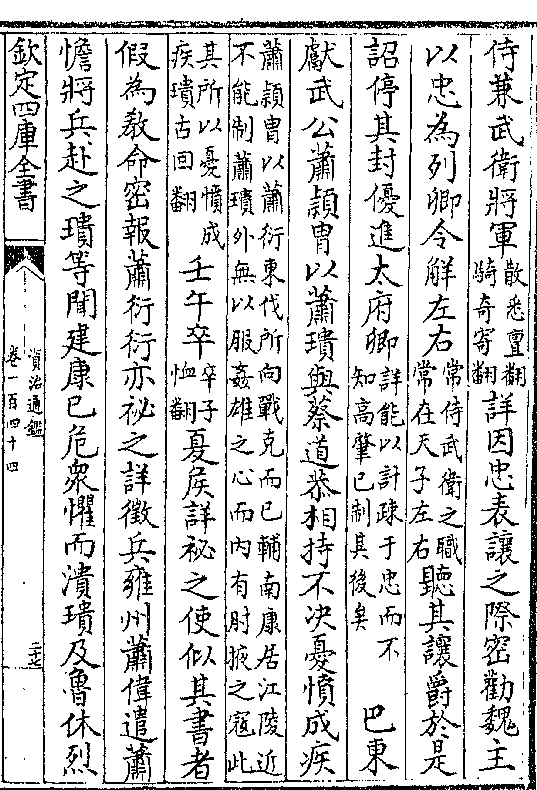 侍兼武衛將軍散悉亶翻騎奇寄翻詳因忠表讓之際密勸魏主
以忠為列卿令解左右常侍武衛之職常在天子左右聽其讓爵於是
詔停其封優進太府卿詳能以計疎于忠而不知高肇已制其後矣 巴東
獻武公蕭頴胄以蕭璝與蔡道恭相持不決憂憤成疾
蕭頴胄以蕭衍東伐所向戰克而已輔南康居江陵近不能制蕭璝外無以服姦雄之心而內有肘掖之寇此
其所以憂憤成疾璝古回翻壬午卒卒子恤翻夏侯詳祕之使似其書者
假為敎命密報蕭衍衍亦祕之詳徵兵雍州蕭偉遣蕭
憺將兵赴之璝等聞建康已危衆懼而潰璝及魯休烈
欽定四庫全書
資治通鑑
卷一百四十四
二十七